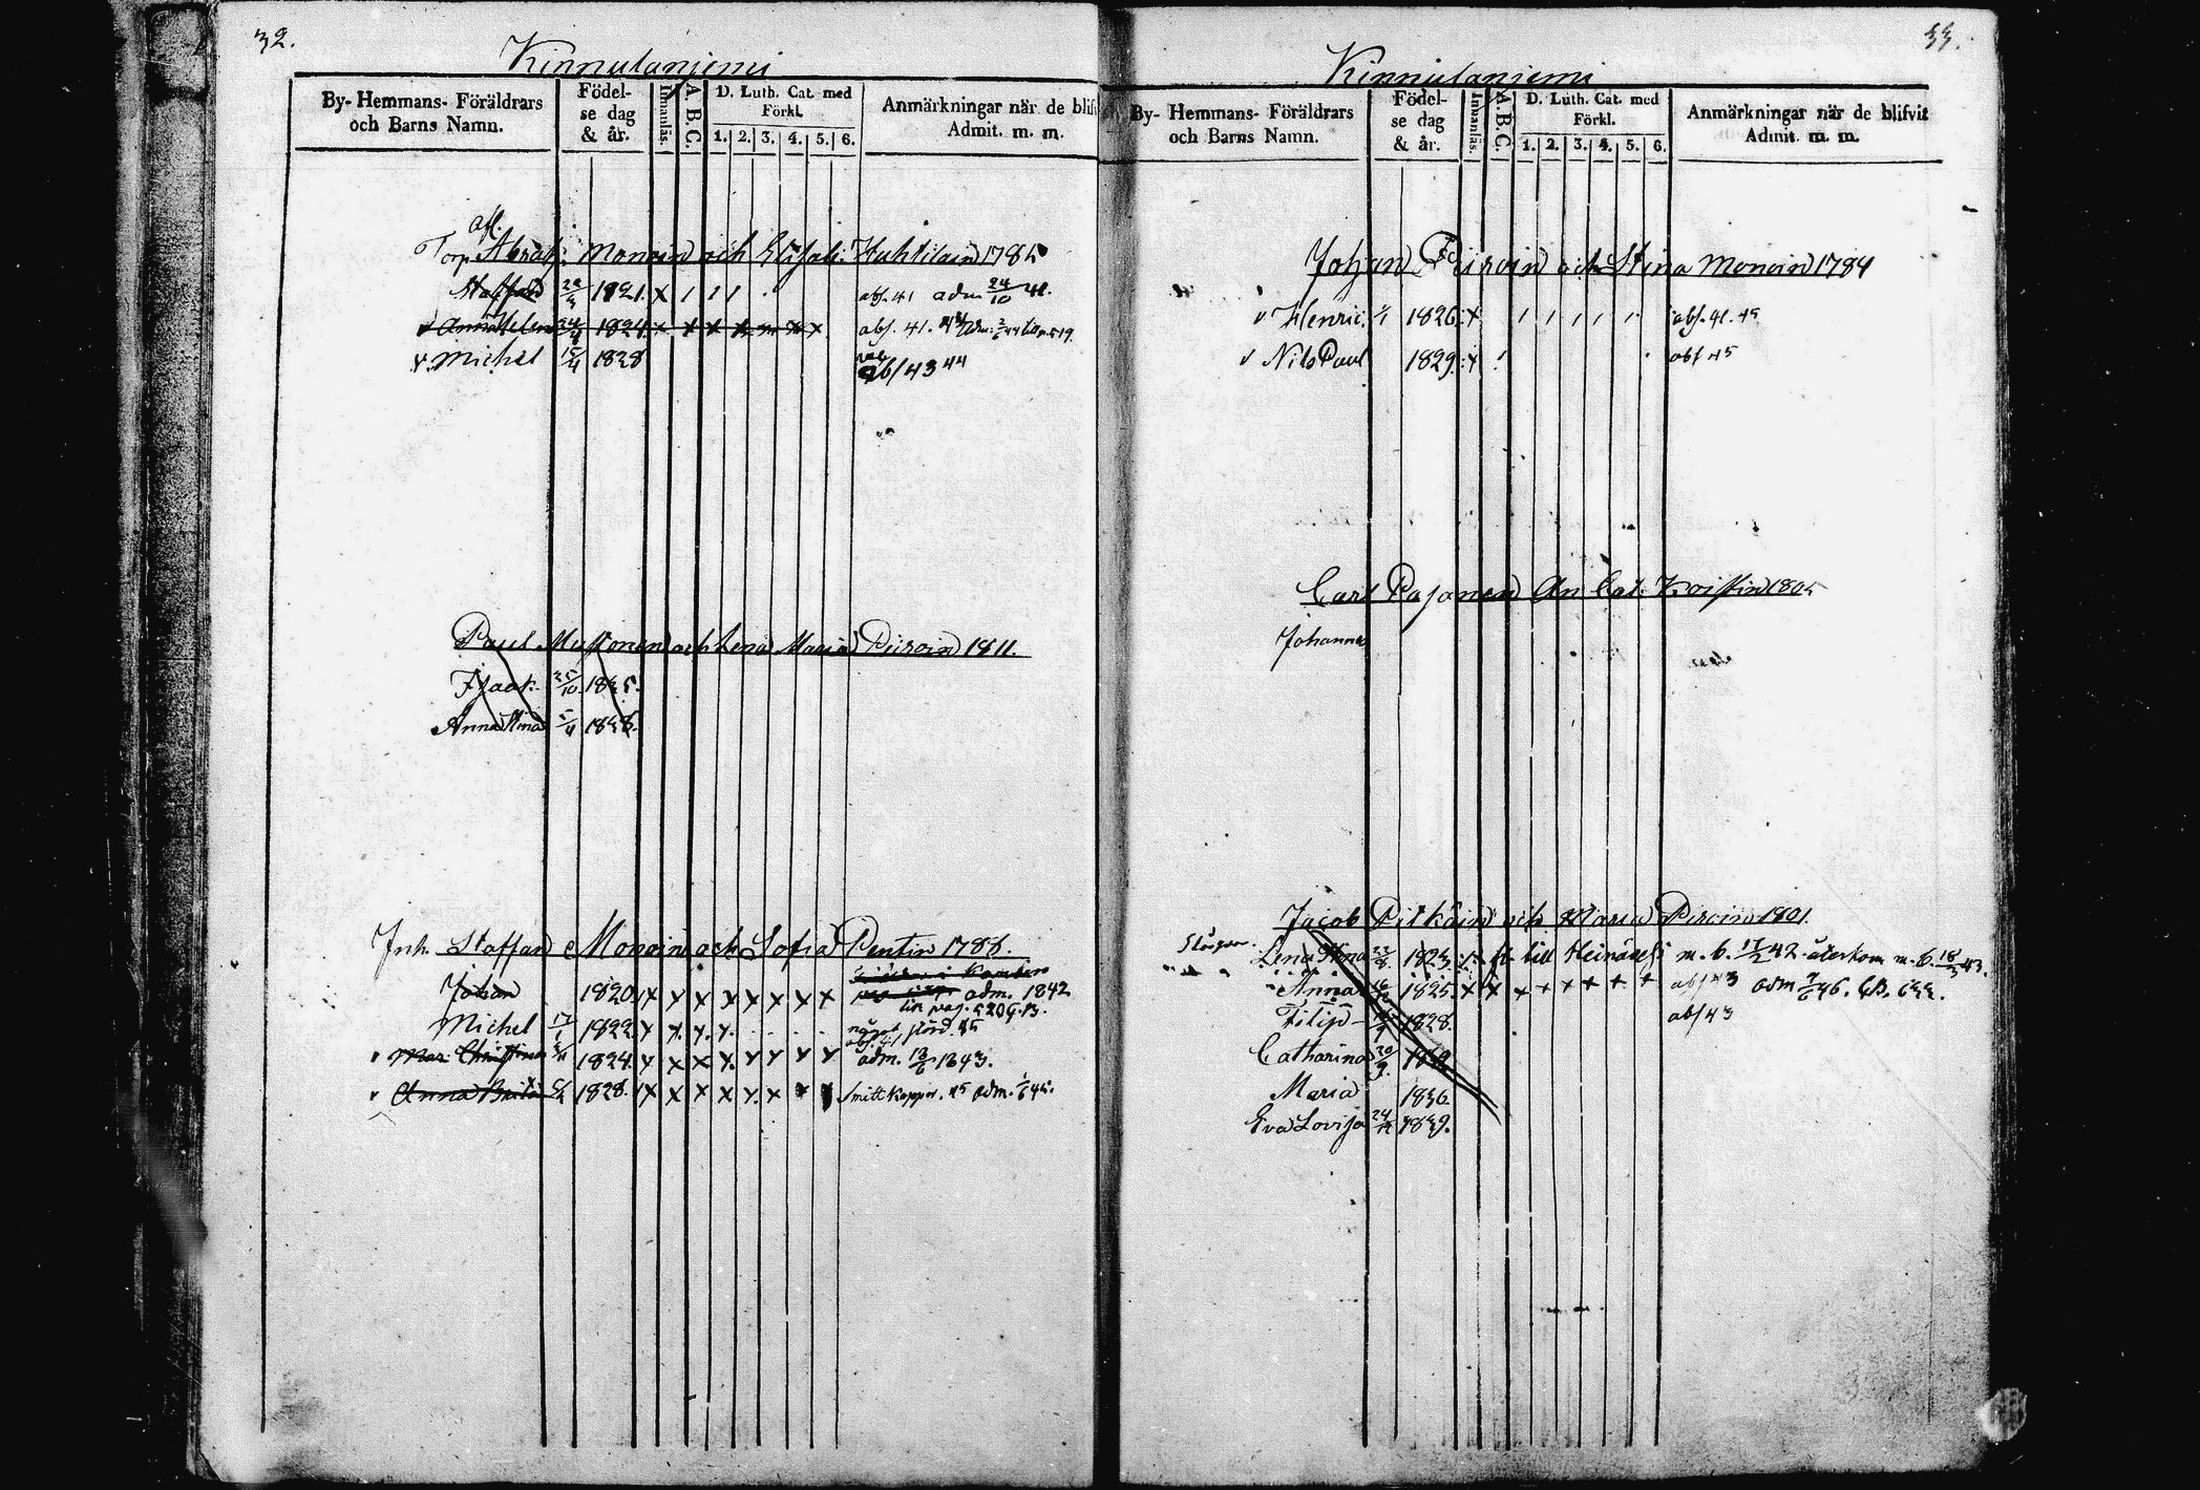 32.
Kinnulanjemi
By- Hemmans- Föräldrars och Barns Namn.
Födelse dag & år.
Innanläs.
A. B. C.
D. Luth. Cat. med Förkl.
1. 2. 3. 4. 5. 6.
Anmärkningar när de blif
Admit. m. m.
afl.
Torp. Abrah: Monoin och Elisab: Huhtilain 1785
Staffan 1821. x abs. 41 adm 24/10 41.
v Anna Helen 1824. x x x x x x abs. 41.
v. Michel 15/4 1828
abs 43 44
Paul Mustonen och Lena Maria Piiroin 1811.
Isaak 25/10 1835.
Anna Stina 5/4 1838.
Inh. Staffan Monoin och Sofia Pentin 1788.
Johan 1820 x x x x x x x x adm. 1842
Michel 17/1 1822. x x. x. x. något
abs. 41
Mar. Christina 1824. x x x x x x x x adm. 13/6 1843.
v Anna Brita 1828. x x x x x x x Smittkoppor. 45 adm.
33.
Kinnulanjemi
By- Hemmans- Föräldrars och Barns Namn.
Födelse dag & år.
Innanläs.
A. B. C.
D. Luth. Cat. med Förkl.
1. 2. 3. 4. 5. 6.
Anmärkningar när de blifvit
Admit. m. m.
Johan Piiroin och Stina Monoin 1784
v Henric. 1/1 1826. x abs. 41. 45
v Nils Paul 1829. x abs 45
Carl Pasanen An Cat. Koistin 1805
Johannes
Jacob Pitkäin och Maria Piroin 1801.
Lena Stina 1823. fl. till Heinävesi m. b. 17/2 42. återkom m. b. 18/3 43.
Anna 1825. x x x x x x x x abs 43 adm 7/6 46.
Filip 1828. abs 43
Catharina 20/9
Maria 1836
Eva Lovisa 24/12 1839.